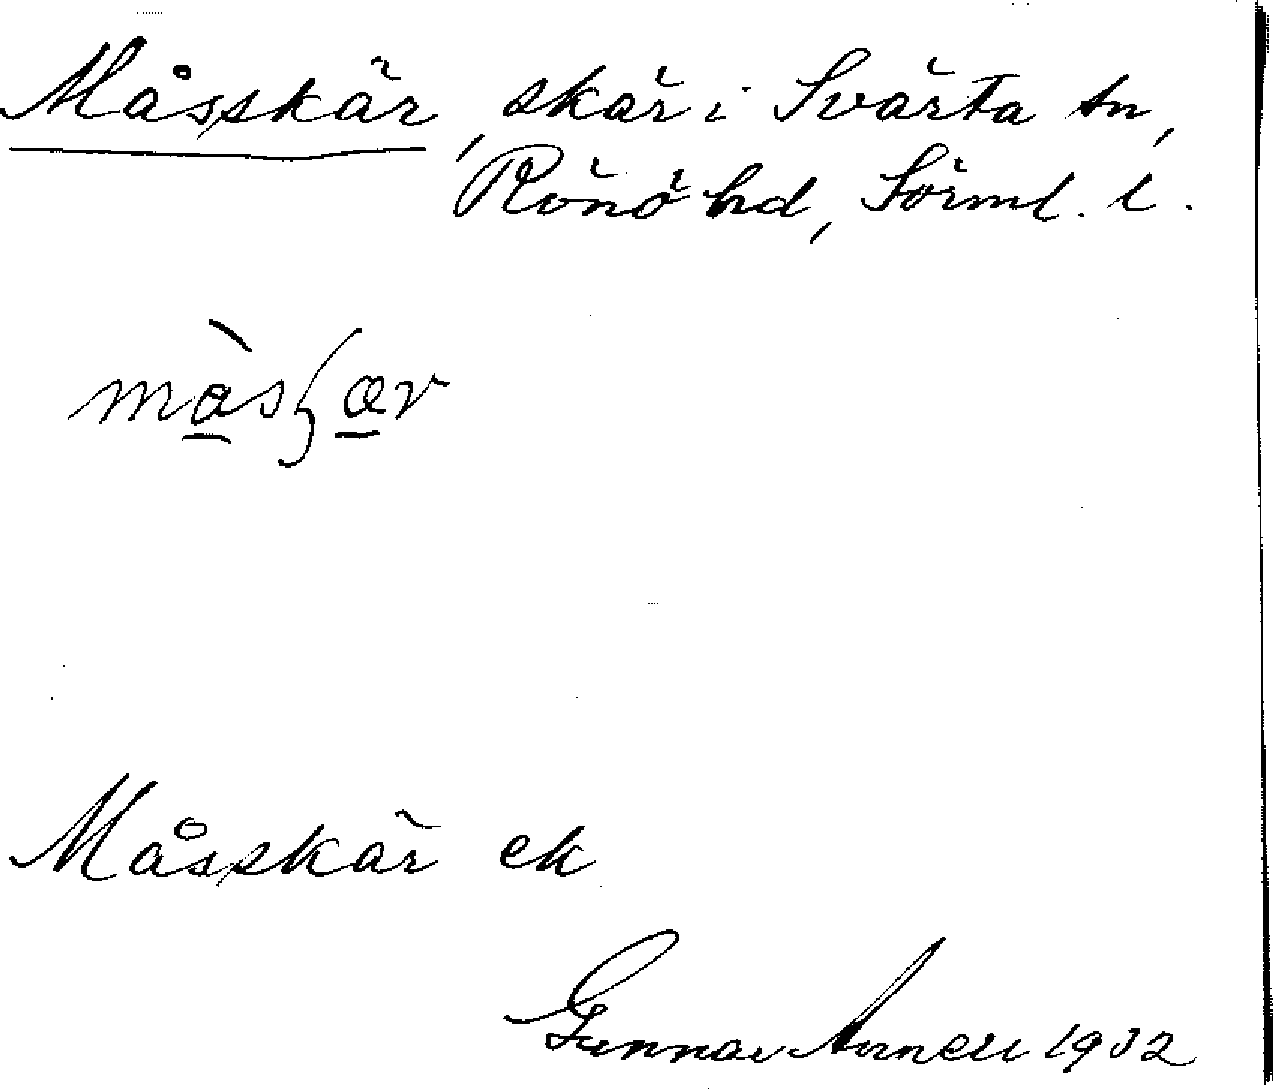 Måsskär, skär i Svärta sn,
Rönö hd, Sörml. l.
Måsskär ek
Gunnar Annell 1932